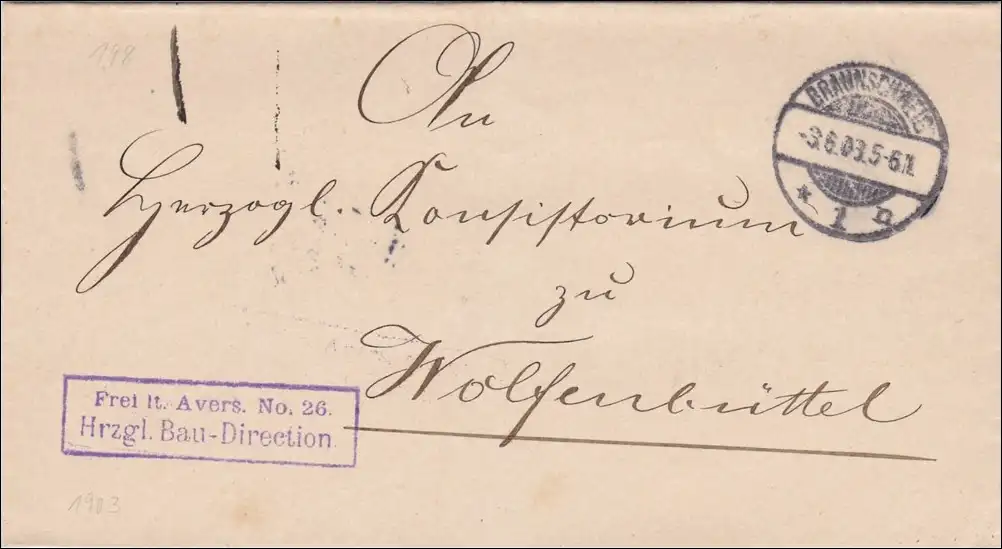 198
An
BRAUNSCHWEIG
-3.6.03.5-6N.
* 1 q
Herzogl. Konsistorium
zu
Wolfenbüttel
Frei lt. Avers. No. 26.
Hrzgl. Bau-Direction.
1903